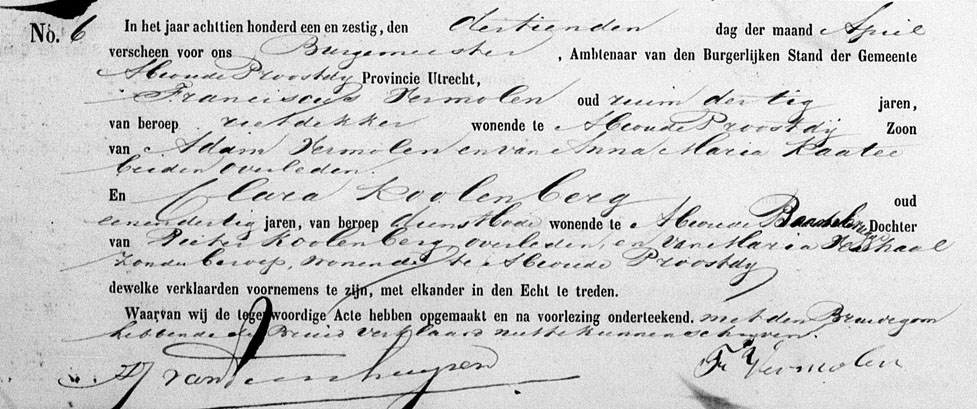 No. 6 In het jaar achttien honderd een en zestig, den dertienden dag der maand April
verscheen voor ons Burgemeester , Ambtenaar van den Burgerlijken Stand der Gemeente
Abcoude Proostdy Provincie Utrecht,
Franciscus Vermolen oud ruim dertig jaren,
van beroep rietdekker wonende te Abcoude Proostdij Zoon
van Adam Vermolen en van Anna Maria Kaatee
beiden overleden.
En Clara Koolenberg oud
eenendertig jaren, van beroep dienstbode wonende te Abcoude Dochter
van Pieter Koolenberg overleden, en van Maria
zonder beroep, wonende te Abcoude Proostdy
dewelke verklaarden voornemens te zijn, met elkander in den Echt te treden.
Waarvan wij de tegenwoordige Acte hebben opgemaakt en na voorlezing onderteekend. met den Bruidegom
hebbende de Bruid verklaard niet te kunnen schrijven.
Fr Vermolen